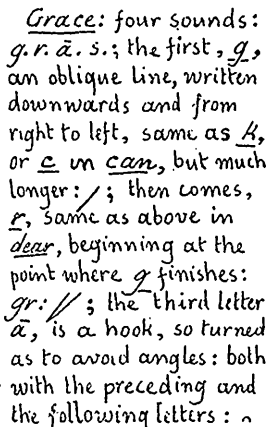 Grace: four sounds:
g. r. ā. s.; the first, g,
an oblique line, written
downwards and from
right to left, same as k,
or c in can, but much
longer: / ; then comes,
r, same as above in
dear, beginning at the
point where g finishes:
gr: // ; the third letter
ā, is a hook, so turned
as to avoid angles: both
with the preceding and
the following letters :